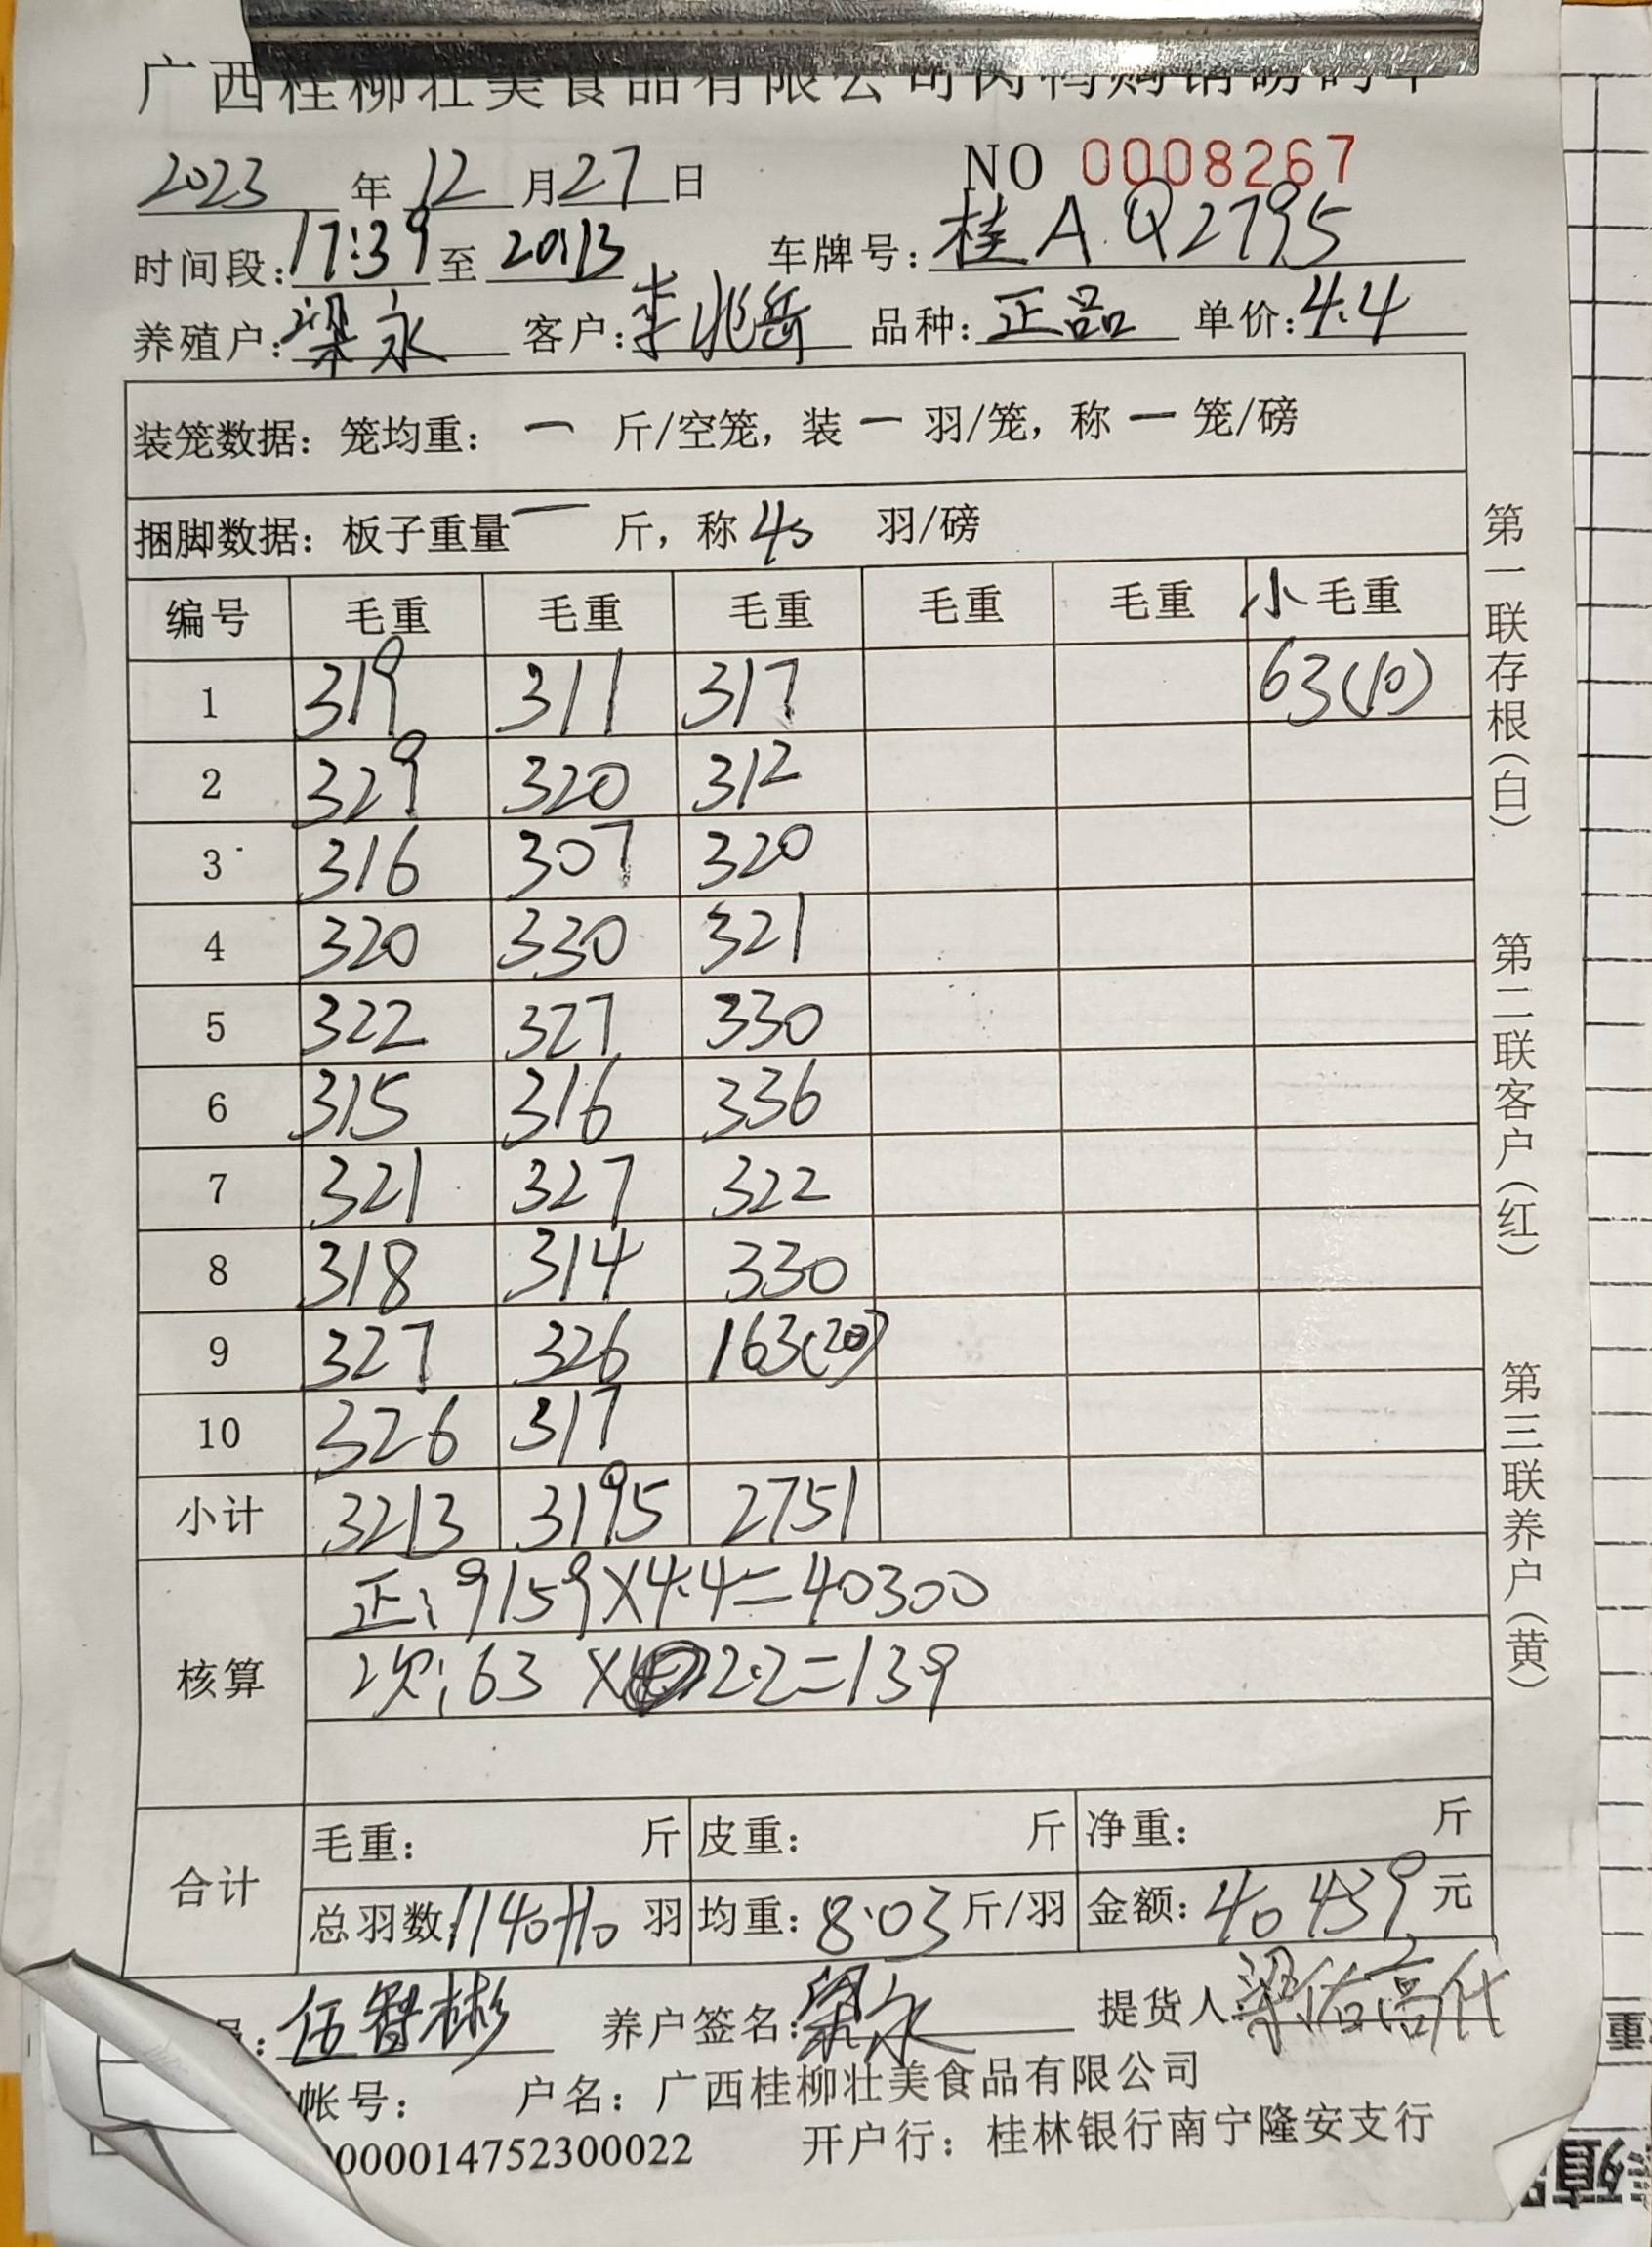 广西桂柳壮美食品有限公司肉鸭购销磅码单
2023 年 12 月 27 日 NO 0008267
时间段: 17:39 至 20:13 车牌号: 桂A.Q2795
养殖户: 梁永 客户: 李兆岳 品种: 正品 单价: 4.4
装笼数据: 笼均重: 一 斤/空笼, 装 一 羽/笼, 称 一 笼/磅
捆脚数据: 板子重量 一 斤, 称 40 羽/磅
编号 毛重 毛重 毛重 毛重 毛重 小毛重
1 319 311 317 63(10)
2 329 320 312
3 316 307 320
4 320 330 321
5 322 327 330
6 315 316 336
7 321 327 322
8 318 314 330
9 327 326 163(20)
10 326 317
小计 3213 3195 2751
核算
正: 9159×4.4=40300
次: 63 × 2.2=139
合计
毛重: 斤 皮重: 斤 净重: 斤
总羽数: 1140+10 羽 均重: 8.03 斤/羽 金额: 40439 元
员: 伍智彬 养户签名: 梁永 提货人: 梁佑高代
帐号: 户名: 广西桂柳壮美食品有限公司
000014752300022 开户行: 桂林银行南宁隆安支行
第一联存根(白) 第二联客户(红) 第三联养户(黄)
重
殖